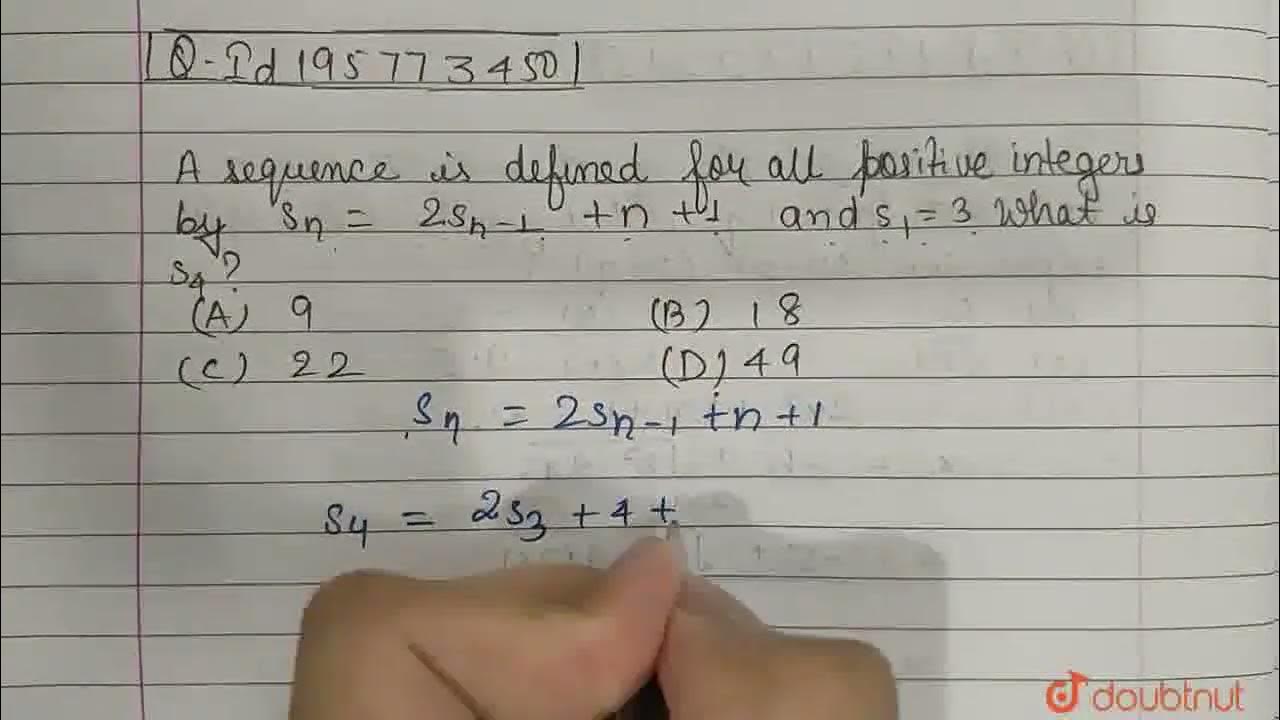 Q-Id 195773450
A sequence is defined for all positive integers
by Sn = 2Sn-1 + n + 1 and S1 = 3 What is
S4 ?
(A) 9 (B) 18
(C) 22 (D) 49
Sn = 2Sn-1 + n + 1
S4 = 2S3 + 4 +
doubtnut